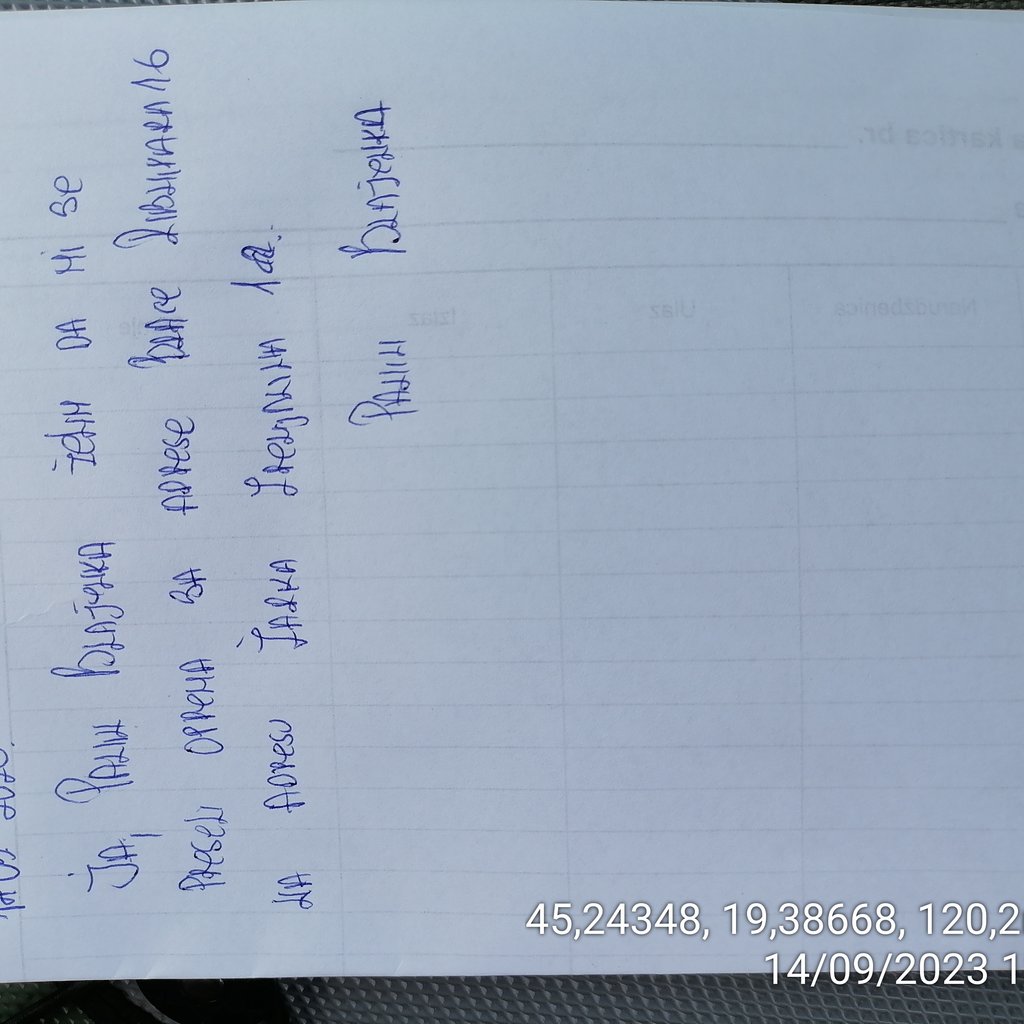 JA, PALIN BLAJENKA ŽELIM DA MI SE
PRESELI OPREMA SA ADRESE BRAĆE RIBNIKARA 16
NA ADRESU ŽARKA ZRENJANINA
PALIN BLAJENKA
kartica br.
Narudzbenica Ulaz Izlaz
45,24348, 19,38668, 120,2
14/09/2023 1